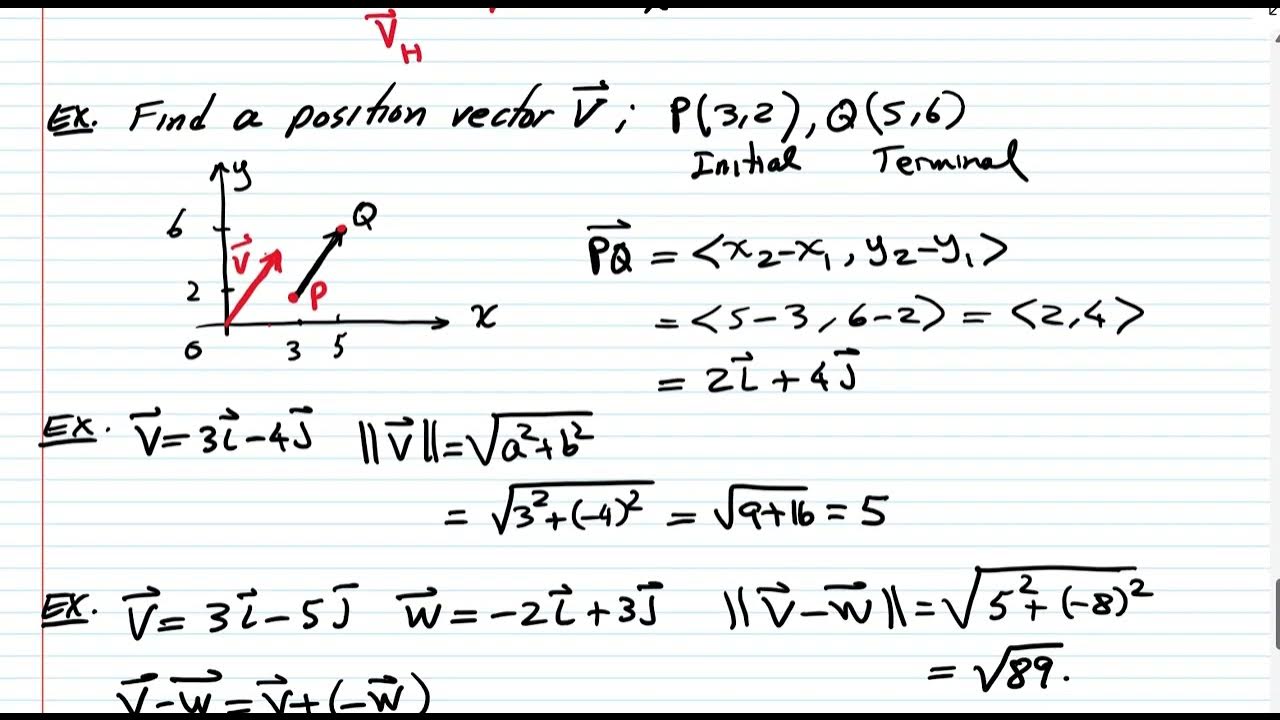 V⃗_H
EX. Find a position vector V⃗ ; P(3,2), Q(5,6)
Initial Terminal
y
6
Q
V⃗
2
P
x
0 3 5
P⃗Q⃗ = <x₂-x₁, y₂-y₁>
= <5-3, 6-2> = <2,4>
= 2i⃗ + 4j⃗
EX. V⃗ = 3i⃗ - 4j⃗ ||V⃗|| = √(a²+b²)
= √(3²+(-4)²) = √(9+16) = 5
EX. V⃗ = 3i⃗ - 5j⃗ W⃗ = -2i⃗ + 3j⃗ ||V⃗ - W⃗|| = √(5²+(-8)²)
= √89.
V⃗ - W⃗ = V⃗ + (-W⃗)